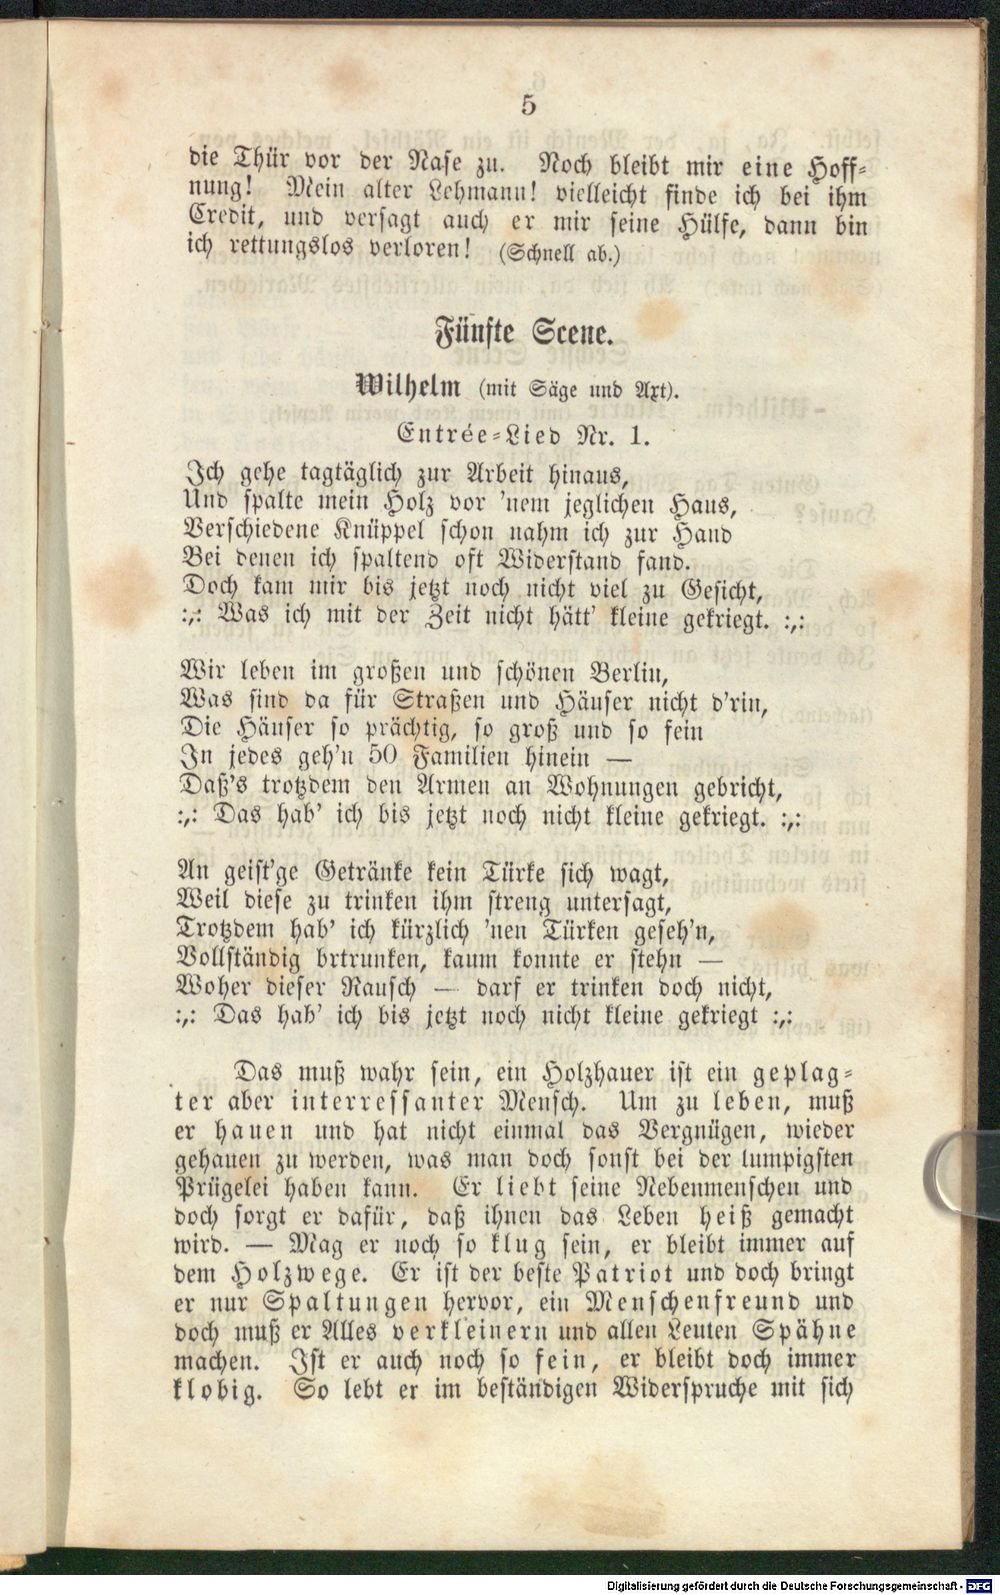 5
die Thür vor der Nase zu. Noch bleibt mir eine Hoff-
nung! Mein alter Lehmann! vielleicht finde ich bei ihm
Credit, und versagt auch er mir seine Hülfe, dann bin
ich rettungslos verloren! (Schnell ab.)
Fünfte Scene.
Wilhelm (mit Säge und Axt).
Entrée-Lied Nr. 1.
Ich gehe tagtäglich zur Arbeit hinaus,
Und spalte mein Holz vor 'nem jeglichen Haus,
Verschiedene Knüppel schon nahm ich zur Hand
Bei denen ich spaltend oft Widerstand fand.
Doch kam mir bis jetzt noch nicht viel zu Gesicht,
:,: Was ich mit der Zeit nicht hätt' kleine gekriegt. :,:
Wir leben im großen und schönen Berlin,
Was sind da für Straßen und Häuser nicht d'rin,
Die Häuser so prächtig, so groß und so fein
In jedes geh'n 50 Familien hinein —
Daß's trotzdem den Armen an Wohnungen gebricht,
:,: Das hab' ich bis jetzt noch nicht kleine gekriegt. :,:
An geist'ge Getränke kein Türke sich wagt,
Weil diese zu trinken ihm streng untersagt,
Trotzdem hab' ich kürzlich 'nen Türken geseh'n,
Vollständig brtrunken, kaum konnte er stehn —
Woher dieser Rausch — darf er trinken doch nicht,
:,: Das hab' ich bis jetzt noch nicht kleine gekriegt :,:
Das muß wahr sein, ein Holzhauer ist ein geplag-
ter aber interressanter Mensch. Um zu leben, muß
er hauen und hat nicht einmal das Vergnügen, wieder
gehauen zu werden, was man doch sonst bei der lumpigsten
Prügelei haben kann. Er liebt seine Nebenmenschen und
doch sorgt er dafür, daß ihnen das Leben heiß gemacht
wird. — Mag er noch so klug sein, er bleibt immer auf
dem Holzwege. Er ist der beste Patriot und doch bringt
er nur Spaltungen hervor, ein Menschenfreund und
doch muß er Alles verkleinern und allen Leuten Spähne
machen. Ist er auch noch so fein, er bleibt doch immer
klobig. So lebt er im beständigen Widerspruche mit sich
Digitalisierung gefördert durch die Deutsche Forschungsgemeinschaft - DFG